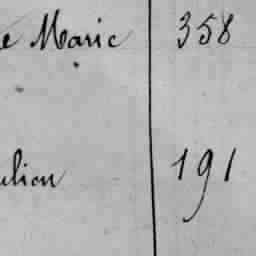 e Marie 358
ulien 191